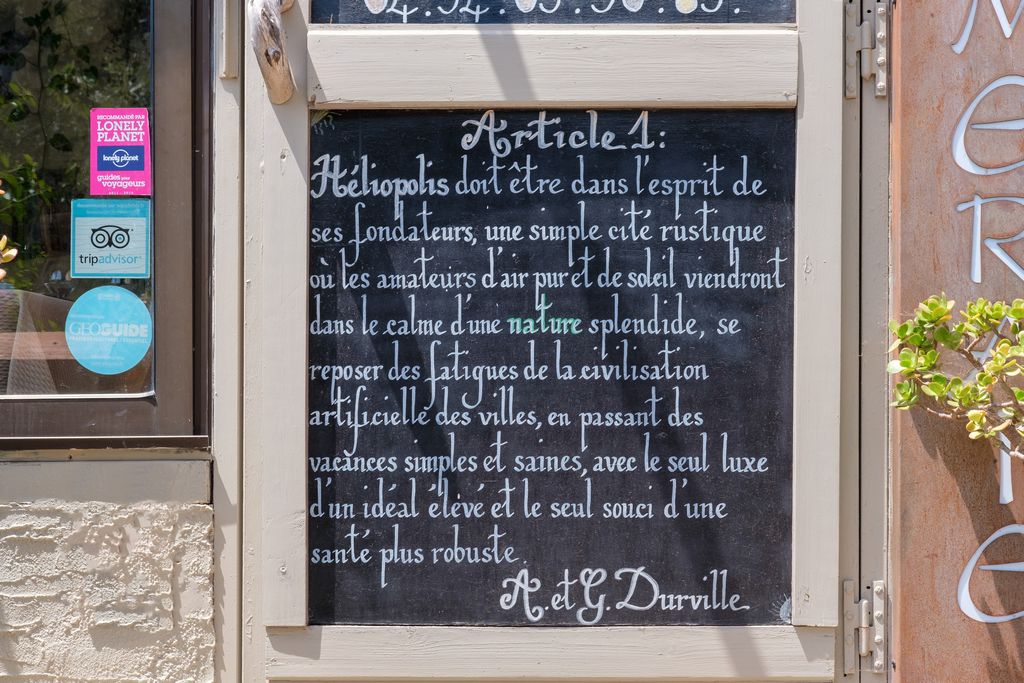 04.94.05.90.63.
Article 1:
Héliopolis doit être dans l'esprit de
ses fondateurs, une simple cité rustique
où les amateurs d'air pur et de soleil viendront
dans le calme d'une nature splendide, se
reposer des fatigues de la civilisation
artificielle des villes, en passant des
vacances simples et saines, avec le seul luxe
d'un idéal élévé et le seul souci d'une
santé plus robuste.
A. et G. Durville
RECOMMANDÉ PAR
LONELY
PLANET
lonely planet
guides pour
voyageurs
tripadvisor
GEOGUIDE